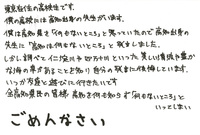 東京在住の高校生です。
僕の高校には高知出身の先生がいます。
僕は高知県を「何もないところ」と思っていたので高知出身の
先生に「高知は何もないところ」と発言しました。
しかし調べていくと
四万十川といった美しい清流や豊か
な海の幸があることを知り自分の発言に後悔しています。
いつか友達と遊びに行きたいです
全高知県民の皆様 高知を何も知らず「何もないところ」と
いってしまい
ごめんなさい